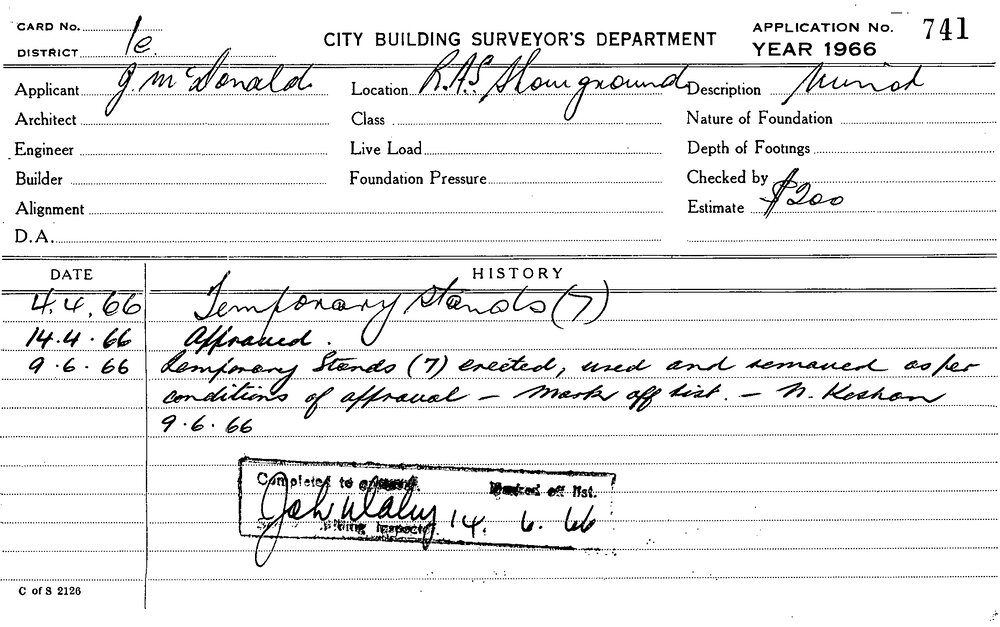 CARD No.
DISTRICT 1e.
CITY BUILDING SURVEYOR'S DEPARTMENT
APPLICATION No. 741
YEAR 1966
Applicant J. McDonald Location R.A.S Showground Description
Architect Class Nature of Foundation
Engineer Live Load Depth of Footings
Builder Foundation Pressure Checked by
Alignment Estimate $200
D.A.
DATE HISTORY
4.4.66 Temporary Stands (7)
14.4.66 Approved.
9.6.66 Temporary Stands (7) erected, used and removed as per
conditions of approval – Mark off list. – N.
9.6.66
Completed to Marked off list.
14. 6. 66
Inspector
C of S 2126